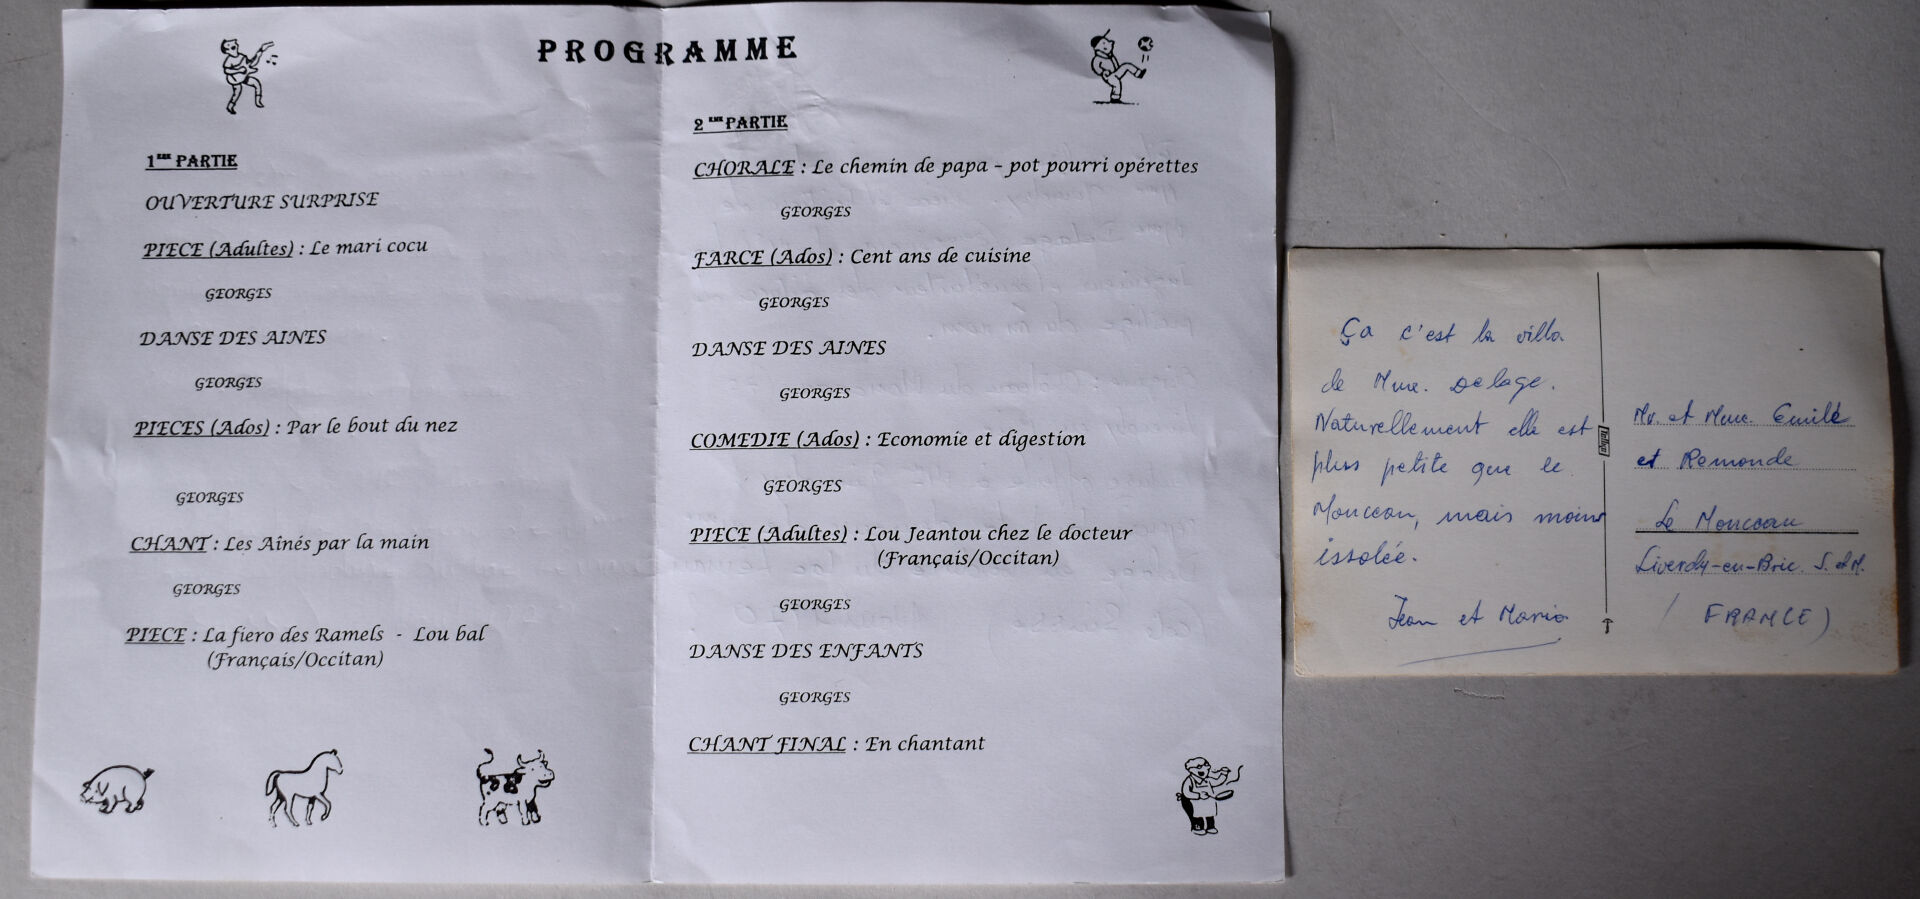 PROGRAMME
1ERE PARTIE
OUVERTURE SURPRISE
PIECE (Adultes) : Le mari cocu
GEORGES
DANSE DES AINES
GEORGES
PIECES (Ados) : Par le bout du nez
GEORGES
CHANT : Les Aînés par la main
GEORGES
PIECE : La fiero des Ramels - Lou bal
(Français/Occitan)
2 EME PARTIE
CHORALE : Le chemin de papa – pot pourri opérettes
GEORGES
FARCE (Ados) : Cent ans de cuisine
GEORGES
DANSE DES AINES
GEORGES
COMEDIE (Ados) : Economie et digestion
GEORGES
PIECE (Adultes) : Lou Jeantou chez le docteur
(Français/Occitan)
GEORGES
DANSE DES ENFANTS
GEORGES
CHANT FINAL : En chantant
Ça c'est la villa
de Mme. Delage.
Naturellement elle est
plus petite que le
Monceau, mais moins
issolée.
Jean et Maria
Mr. et Mme. Emile
et Remonde
Le Monceau
Liverdy-en-Brie. S. et M.
(FRANCE)